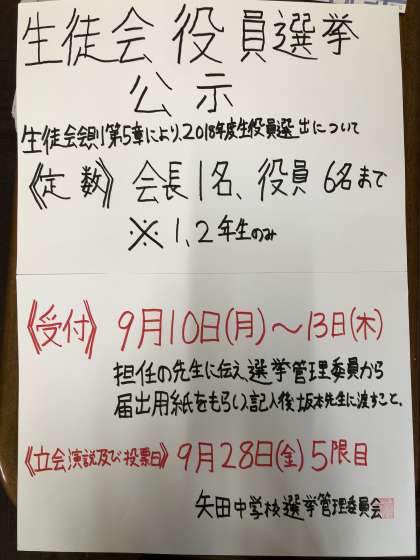 生徒会役員選挙
公示
生徒会会則第5章により、2018年度生役員選出について
《定数》 会長1名、役員 6名まで
※ 1、2年生のみ
《受付》 9月10日(月)～13日(木)
担任の先生に伝え、選挙管理委員から
届出用紙をもらい、記入後坂本先生に渡すこと。
《立会演説及び投票日》 9月28日(金) 5限目
矢田中学校選挙管理委員会